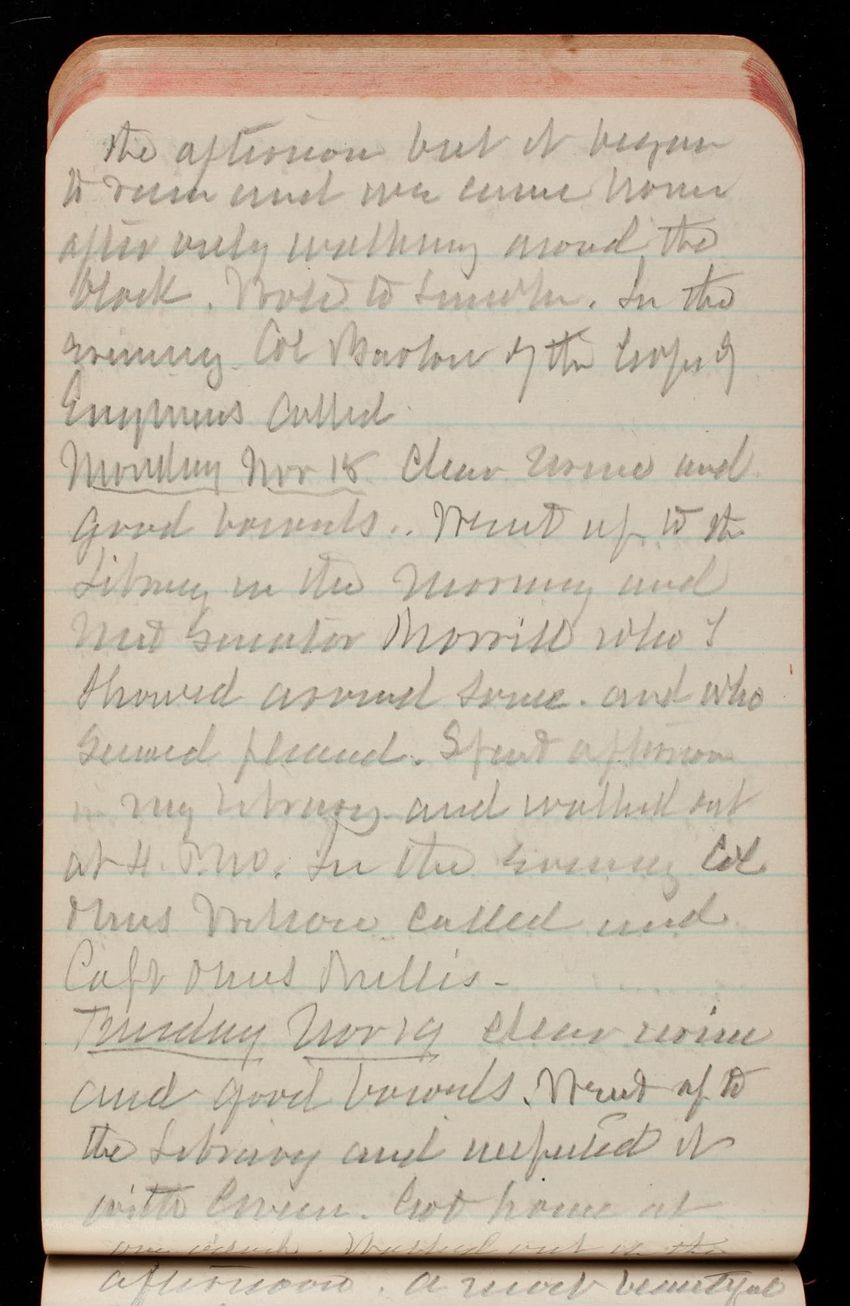 the afternoon but it began
to rain and we came home
after only walking aroud the
block. Wrote to Lincoln. In the
evening Col Barlow of the Corps of
Engineers called
Monday Nov 18 Clear urine and
good bowels.. Went up to the
Library in the Morning and
Met Senator Morrill who I
showed around some. and who
seemed pleased. Spent afternoon
in my library and walked out
at 4. P.M. In the evening Col
Mrs Wilson called and
Capt Mrs
Tuesday Nov 19 clear urine
and good bowels. Went up to
the Library and inspected it
with Green. Got home at
one Walked out in the
afternoon. a most beautiful